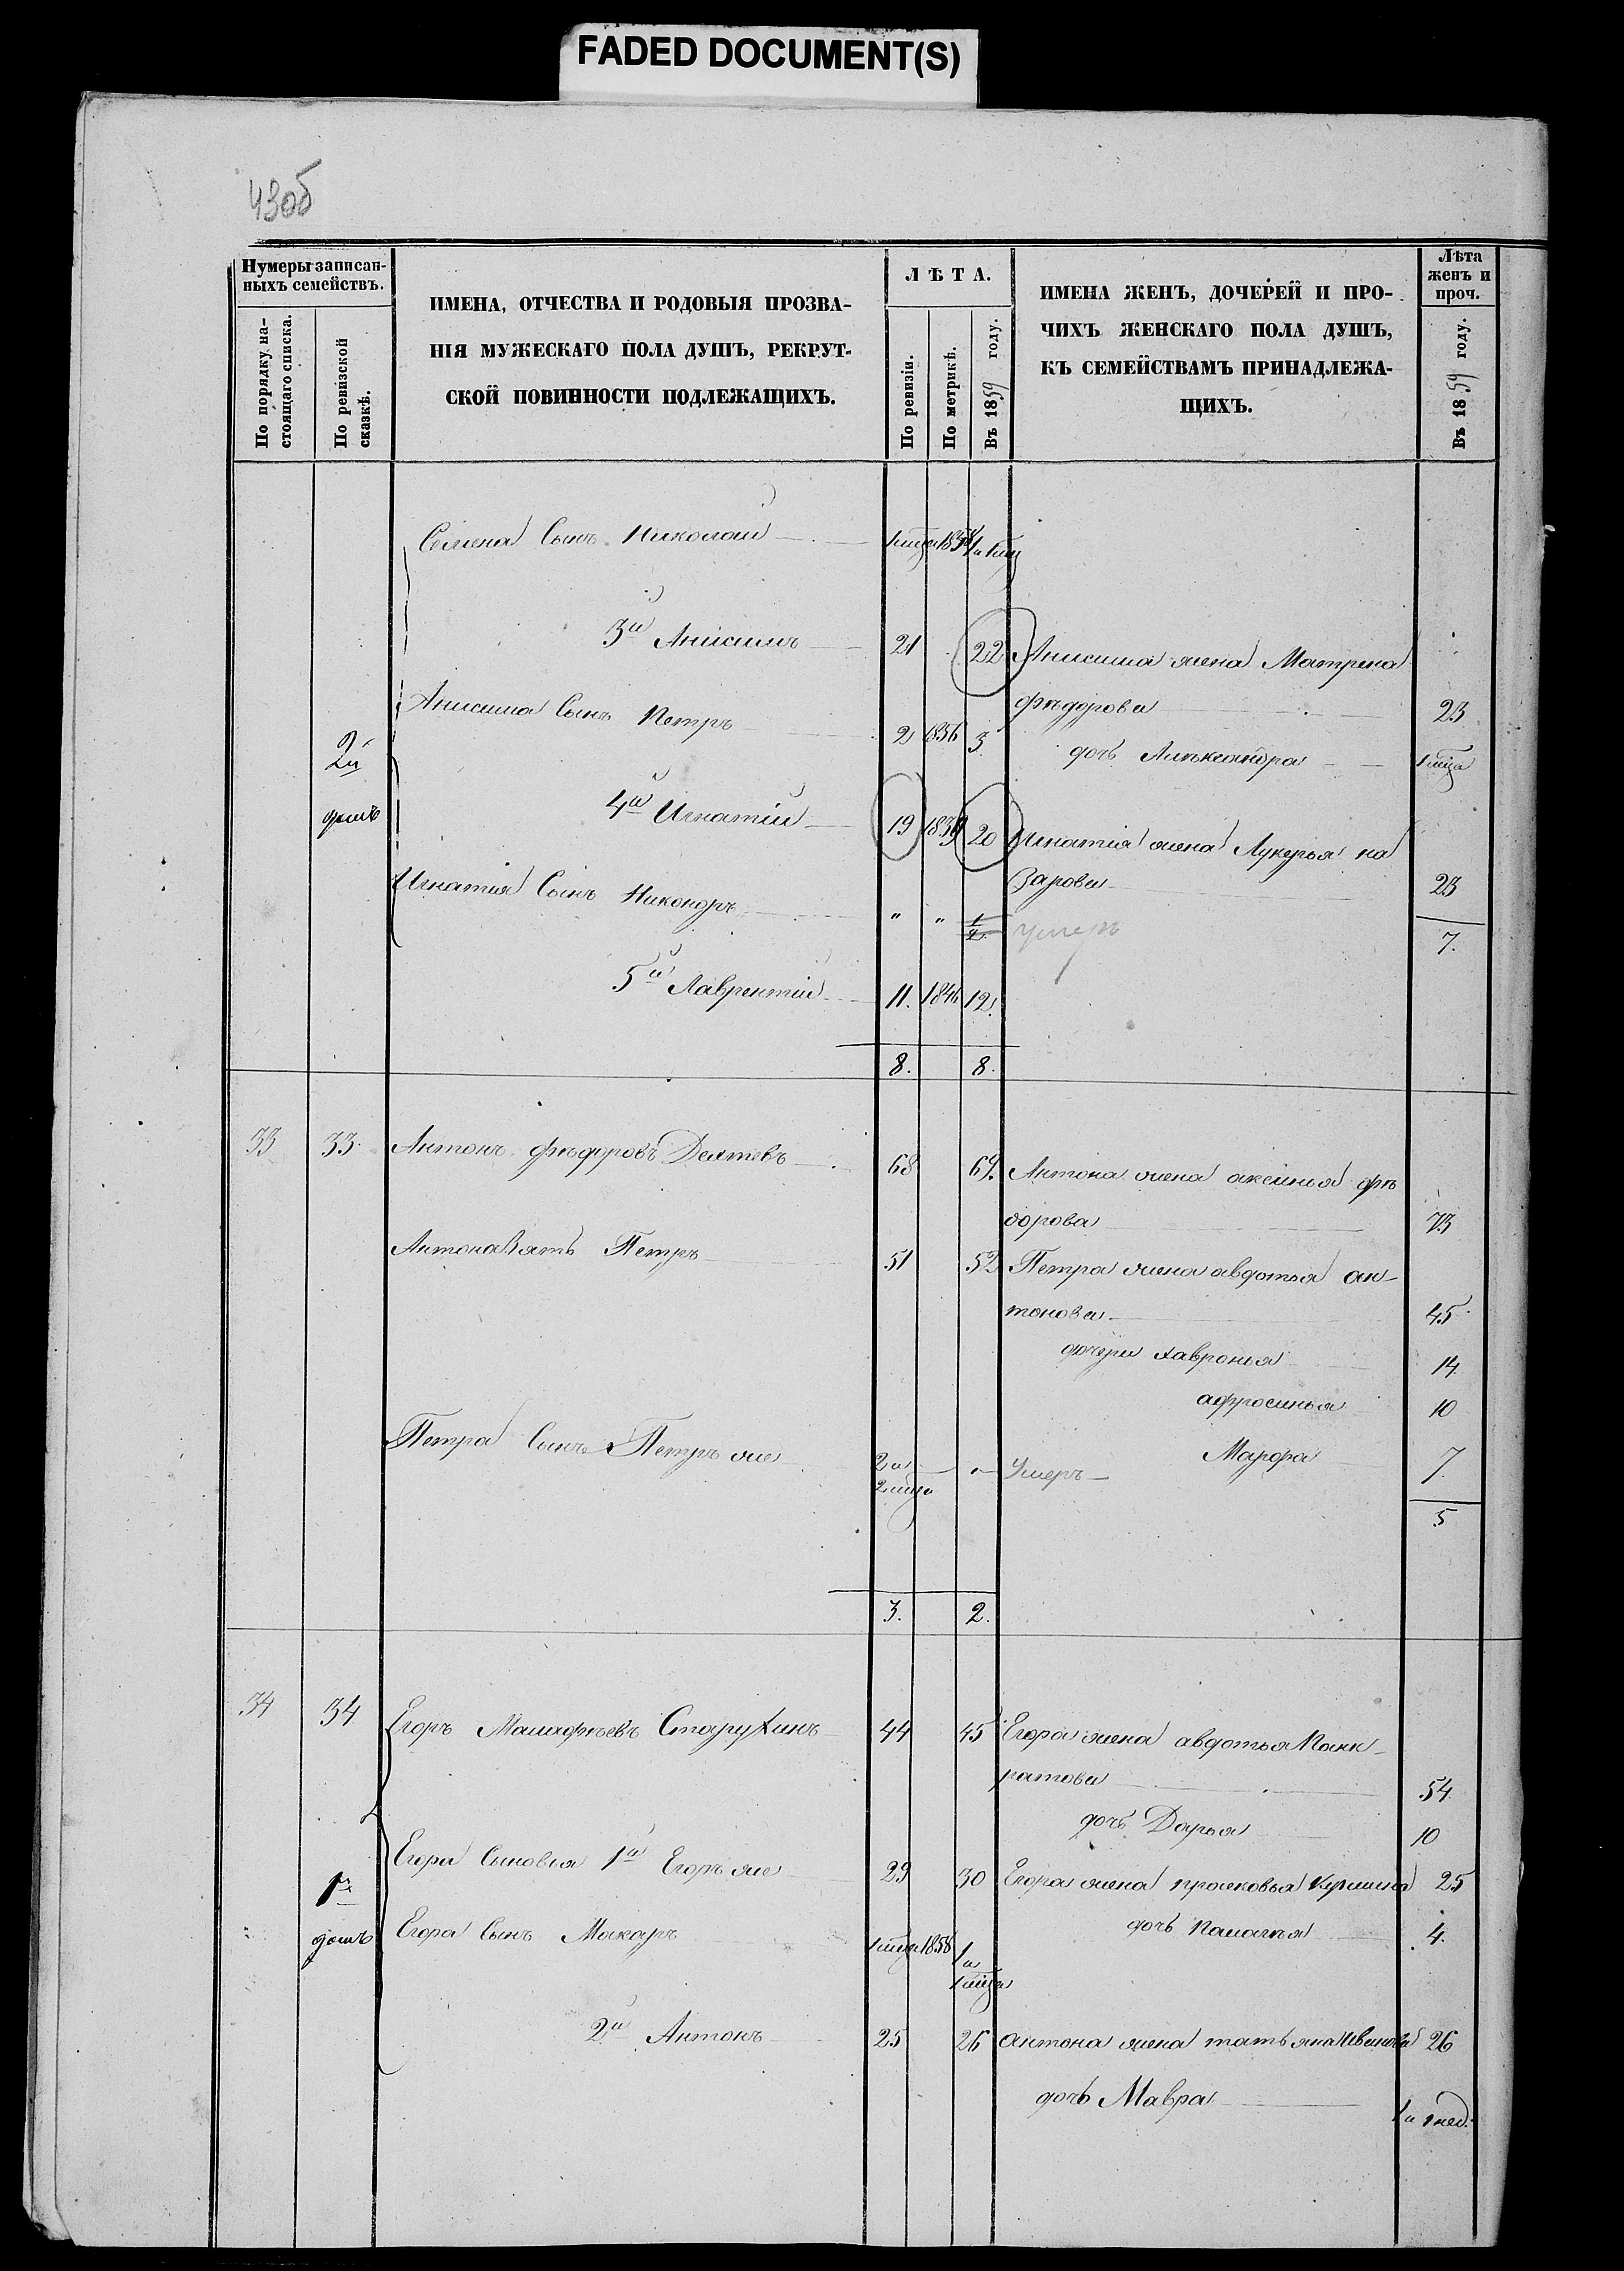 FADED DOCUMENT(S)
43об
Нумеры записан-
ныхъ семействъ.
По порядку на-
стоящаго списка.
По ревизской
сказкѣ.
ИМЕНА, ОТЧЕСТВА И РОДОВЫЯ ПРОЗВА-
НІЯ МУЖЕСКАГО ПОЛА ДУШЪ, РЕКРУТ-
СКОЙ ПОВИННОСТИ ПОДЛЕЖАЩИХЪ.
ЛѢТА.
По ревизіи.
По метрикѣ.
Въ 1859 году.
ИМЕНА ЖЕНЪ, ДОЧЕРЕЙ И ПРО-
ЧИХЪ ЖЕНСКАГО ПОЛА ДУШЪ,
КЪ СЕМЕЙСТВАМЪ ПРИНАДЛЕЖА-
ЩИХЪ.
Лѣта
женъ и
проч.
Въ 1859 году.
Семена Сынъ Николай
3й Анисимъ 21 22 Анисима жена Матрена
федорова 23
Анисима Сынъ Петръ 2 1856 3 дочь Александра 1 мца
2й
домъ
4й Игнатій 19 1839 20 Игнатія жена Лукерья на
зарова 23
Игнатія Сынъ Никоноръ " " 1/2 умеръ
7.
5й Лаврентій 11. 1846 12.
8. 8.
33 33. Антонъ федоровъ 68 69. Антона жена аксинья фе
дорова 73
Антона Зять Петръ 51 52 Петра жена авдотья ан-
тонова 45
дочери Хавронья 14
афросинья 10
Петра Сынъ Петръ же 2 и 2 мца " умеръ Марфа 7.
5
3. 2.
34 34 Егоръ Малафѣевъ Старухинъ 44 45 Егора жена авдотья Панк-
ратова 54
дочь Дарья 10
1й
домъ
Егора Сыновья 1й Егоръ же 29 30 Егора жена прасковья 25
дочь Палагья 4.
Егора Сынъ Макаръ 1 мца 1858 1 и
1 мца
2й Антонъ 25 26 антона жена татьяна Иванова 26
дочь Мавра 1 и 1 нед.